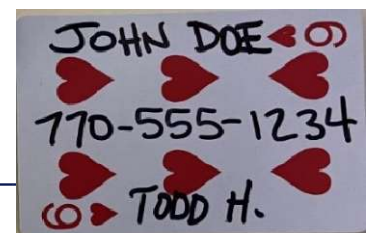 JOHN DOE 6
770-555-1234
6 TODD H.